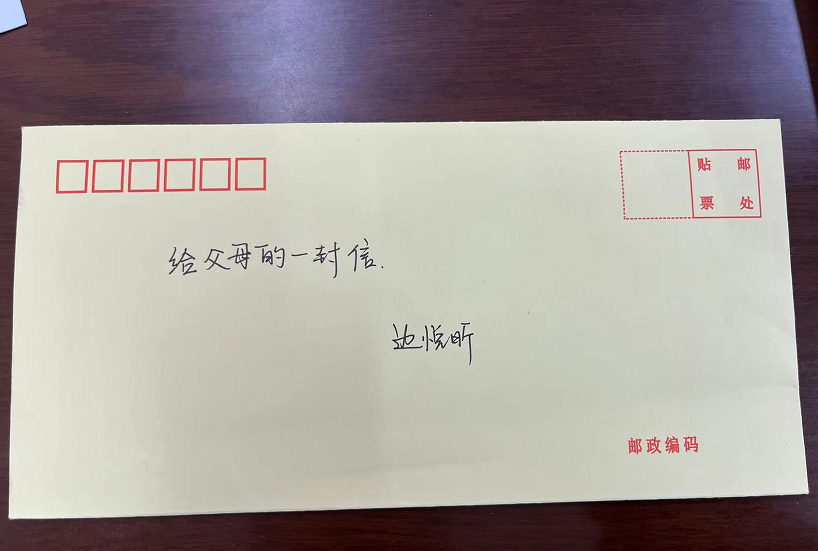 贴 邮
票 处
给父母的一封信.
边悦昕
邮政编码